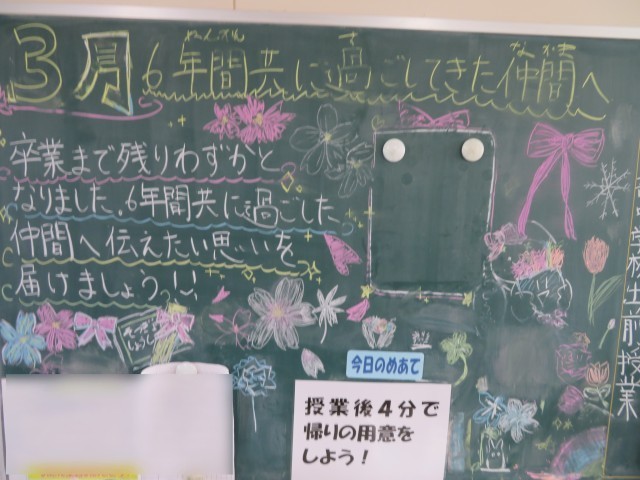 3月 6年間共に過ごしてきた仲間へ
卒業まで残りわずかと
なりました。6年間共に過ごした
仲間へ伝えたい思いを
届けましょう!!
今日のめあて
授業後4分で
帰りの用意を
しよう!